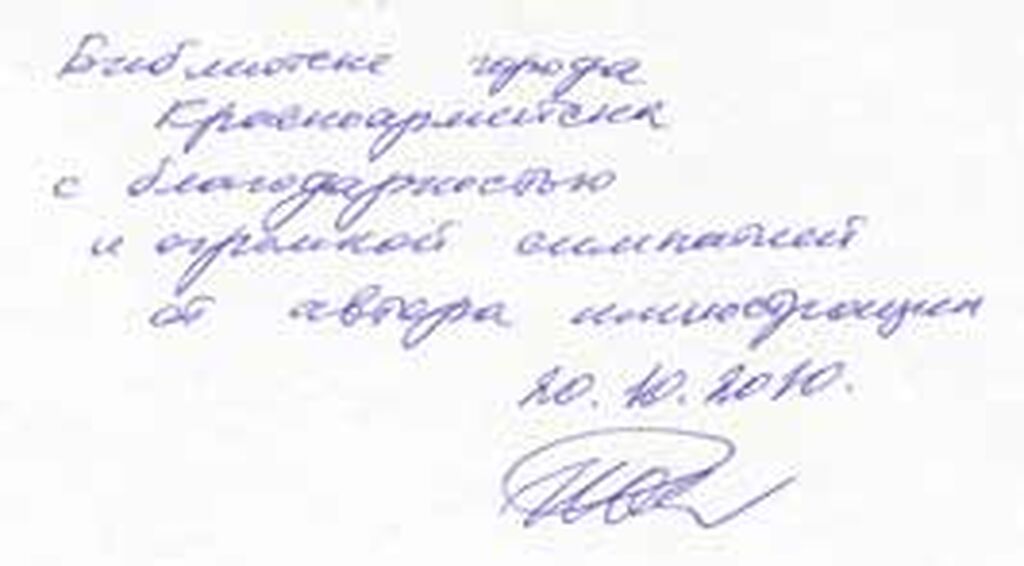 Библиотеке города
Красноармейска
с благодарностью
и огромной симпатией
от автора иллюстраций
20.10.2010.